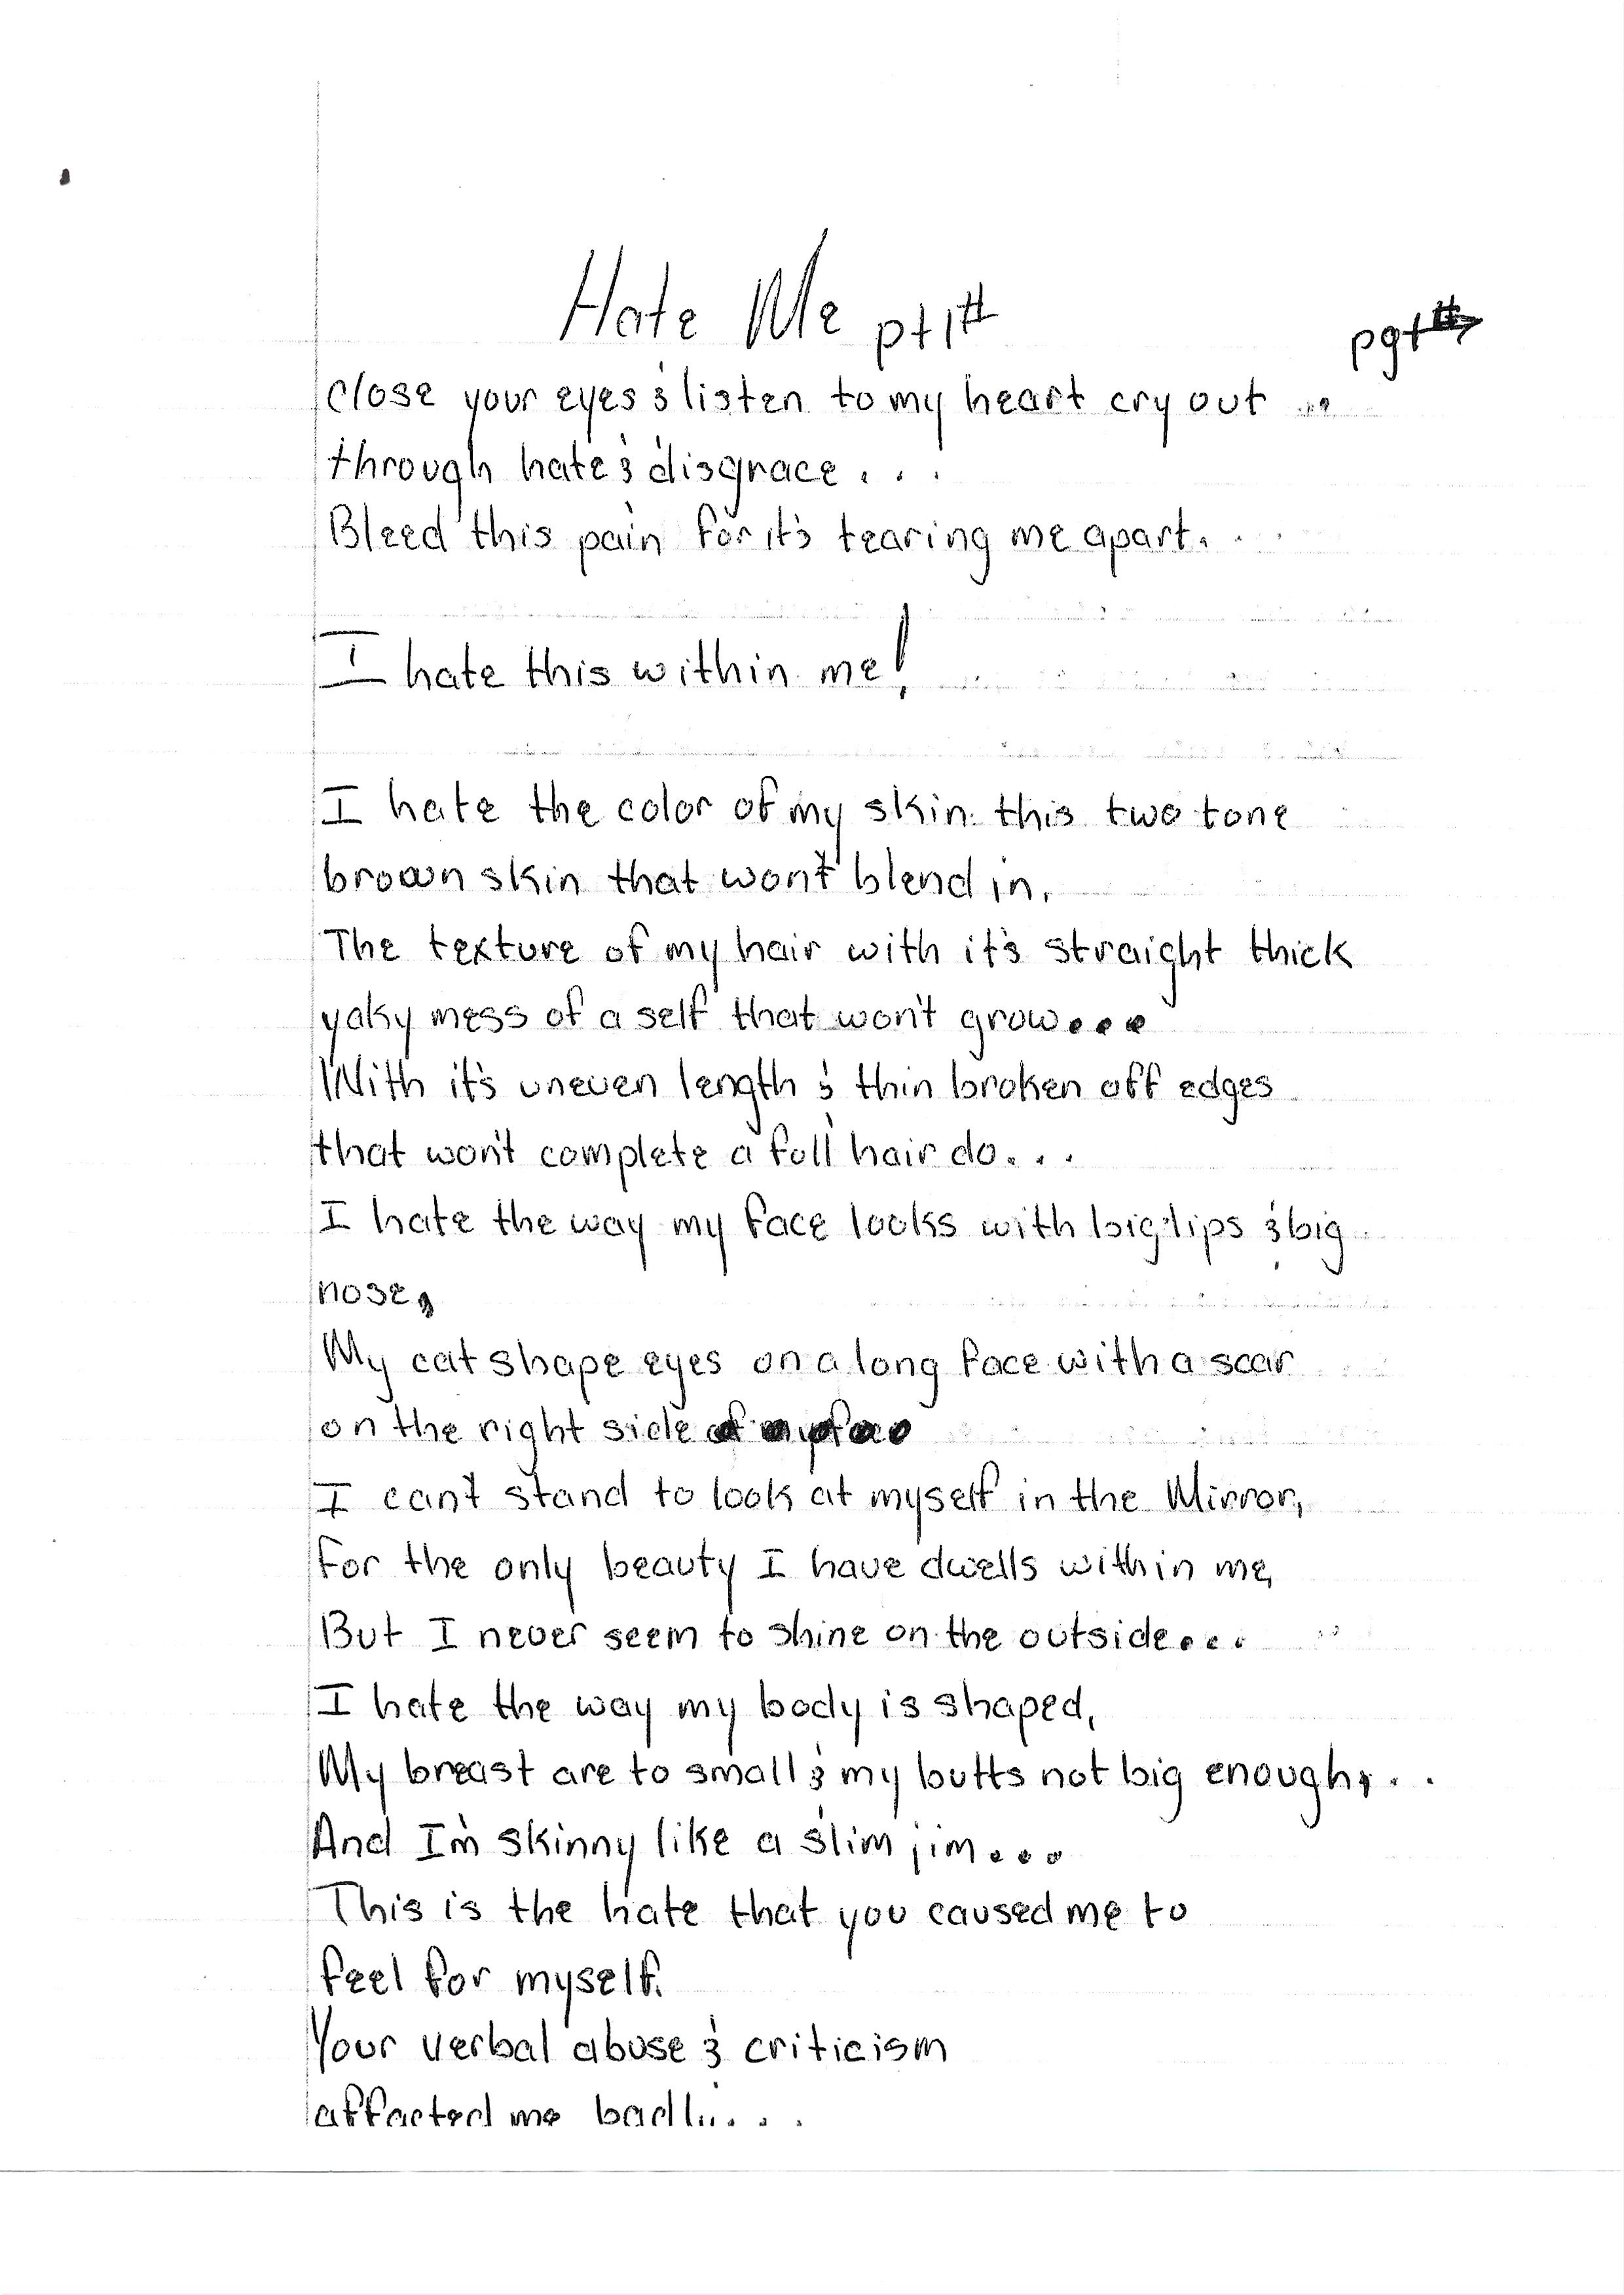 Hate Me pt1#
pg1
Close your eyes & listen to my heart cry out ...
through hate & disgrace...
Bleed this pain for it's tearing me apart...
I hate this within me!
I hate the color of my skin this two tone
brown skin that won't blend in.
The texture of my hair with it's straight thick
yaky mess of a self that won't grow...
With it's uneven length & thin broken off edges
that won't complete a full hair do...
I hate the way my face looks with big lips & big
nose,
My cat shape eyes on a long face with a scar
on the right side
I can't stand to look at myself in the Mirror,
for the only beauty I have dwells within me,
But I never seem to shine on the outside...
I hate the way my body is shaped,
My breast are to small & my butts not big enough...
And I'm skinny like a slim jim...
This is the hate that you caused me to
feel for myself.
Your verbal abuse & criticism
affected me badly...